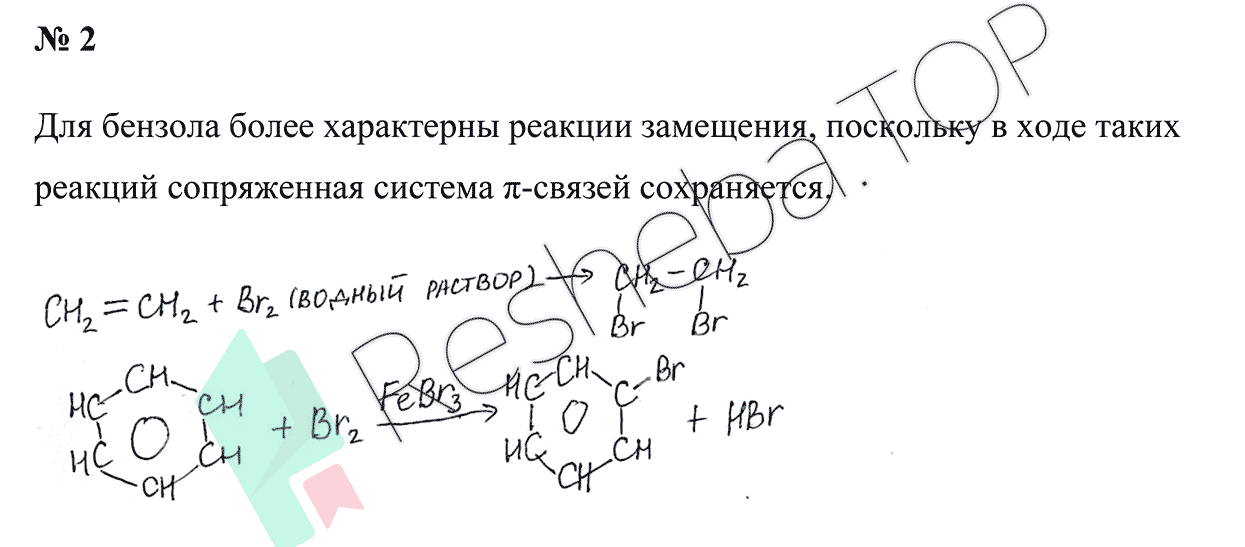 № 2
Для бензола более характерны реакции замещения, поскольку в ходе таких
реакций сопряженная система π-связей сохраняется.
CH₂=CH₂ + Br₂ (ВОДНЫЙ РАСТВОР) → CH₂–CH₂
Br Br
HC CH CH HC CH CH + Br₂ FeBr₃ → HC CH C Br HC CH CH + HBr
Resheba.TOP